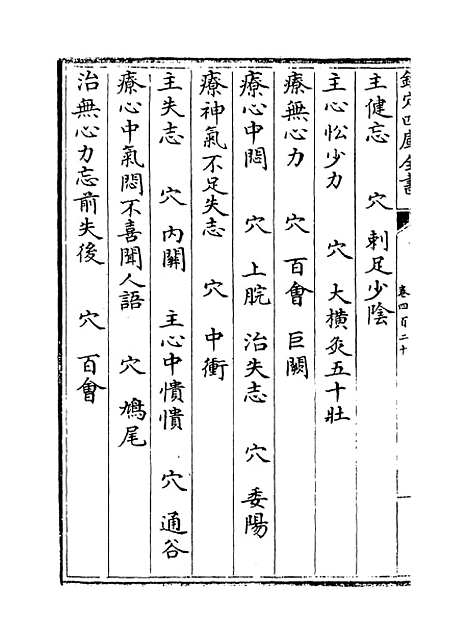 欽定四庫全書
卷四百二十
主健忘　穴　刺足少陰
主心忪少力　穴　大橫灸五十壯
療無心力　穴　百會　巨闕
療心中悶　穴　上脘　治失志　穴　委陽
療神氣不足失志　穴　中衝
主失志　穴　內關　主心中憒憒　穴　通谷
療心中氣悶不喜聞人語　穴　鳩尾
治無心力忘前失後　穴　百會